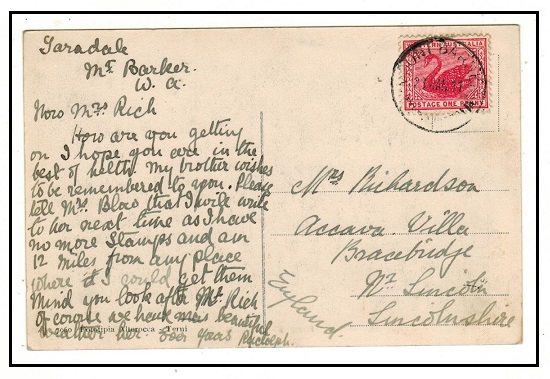 Taradale
Mt Barker.
W. A.
Mrs Rich
How are you getting
on I hope you are in the
best of health. My brother wishes
to be remembered to you. Please
tell Mrs that I will write
to her next time as I have
no more Stamps and am
12 miles from any place
where I could get them
Mind you look after Mr. Rich
of course we have
weather her over yours Rudolph.
Terni
WESTERN AUSTRALIA
POSTAGE ONE PENNY
Mrs Richardson
Accava Villa
Bracebridge
Nr Lincoln
Lincolnshire
England.